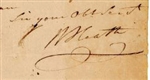 Sir your Obt Servt
W Heath